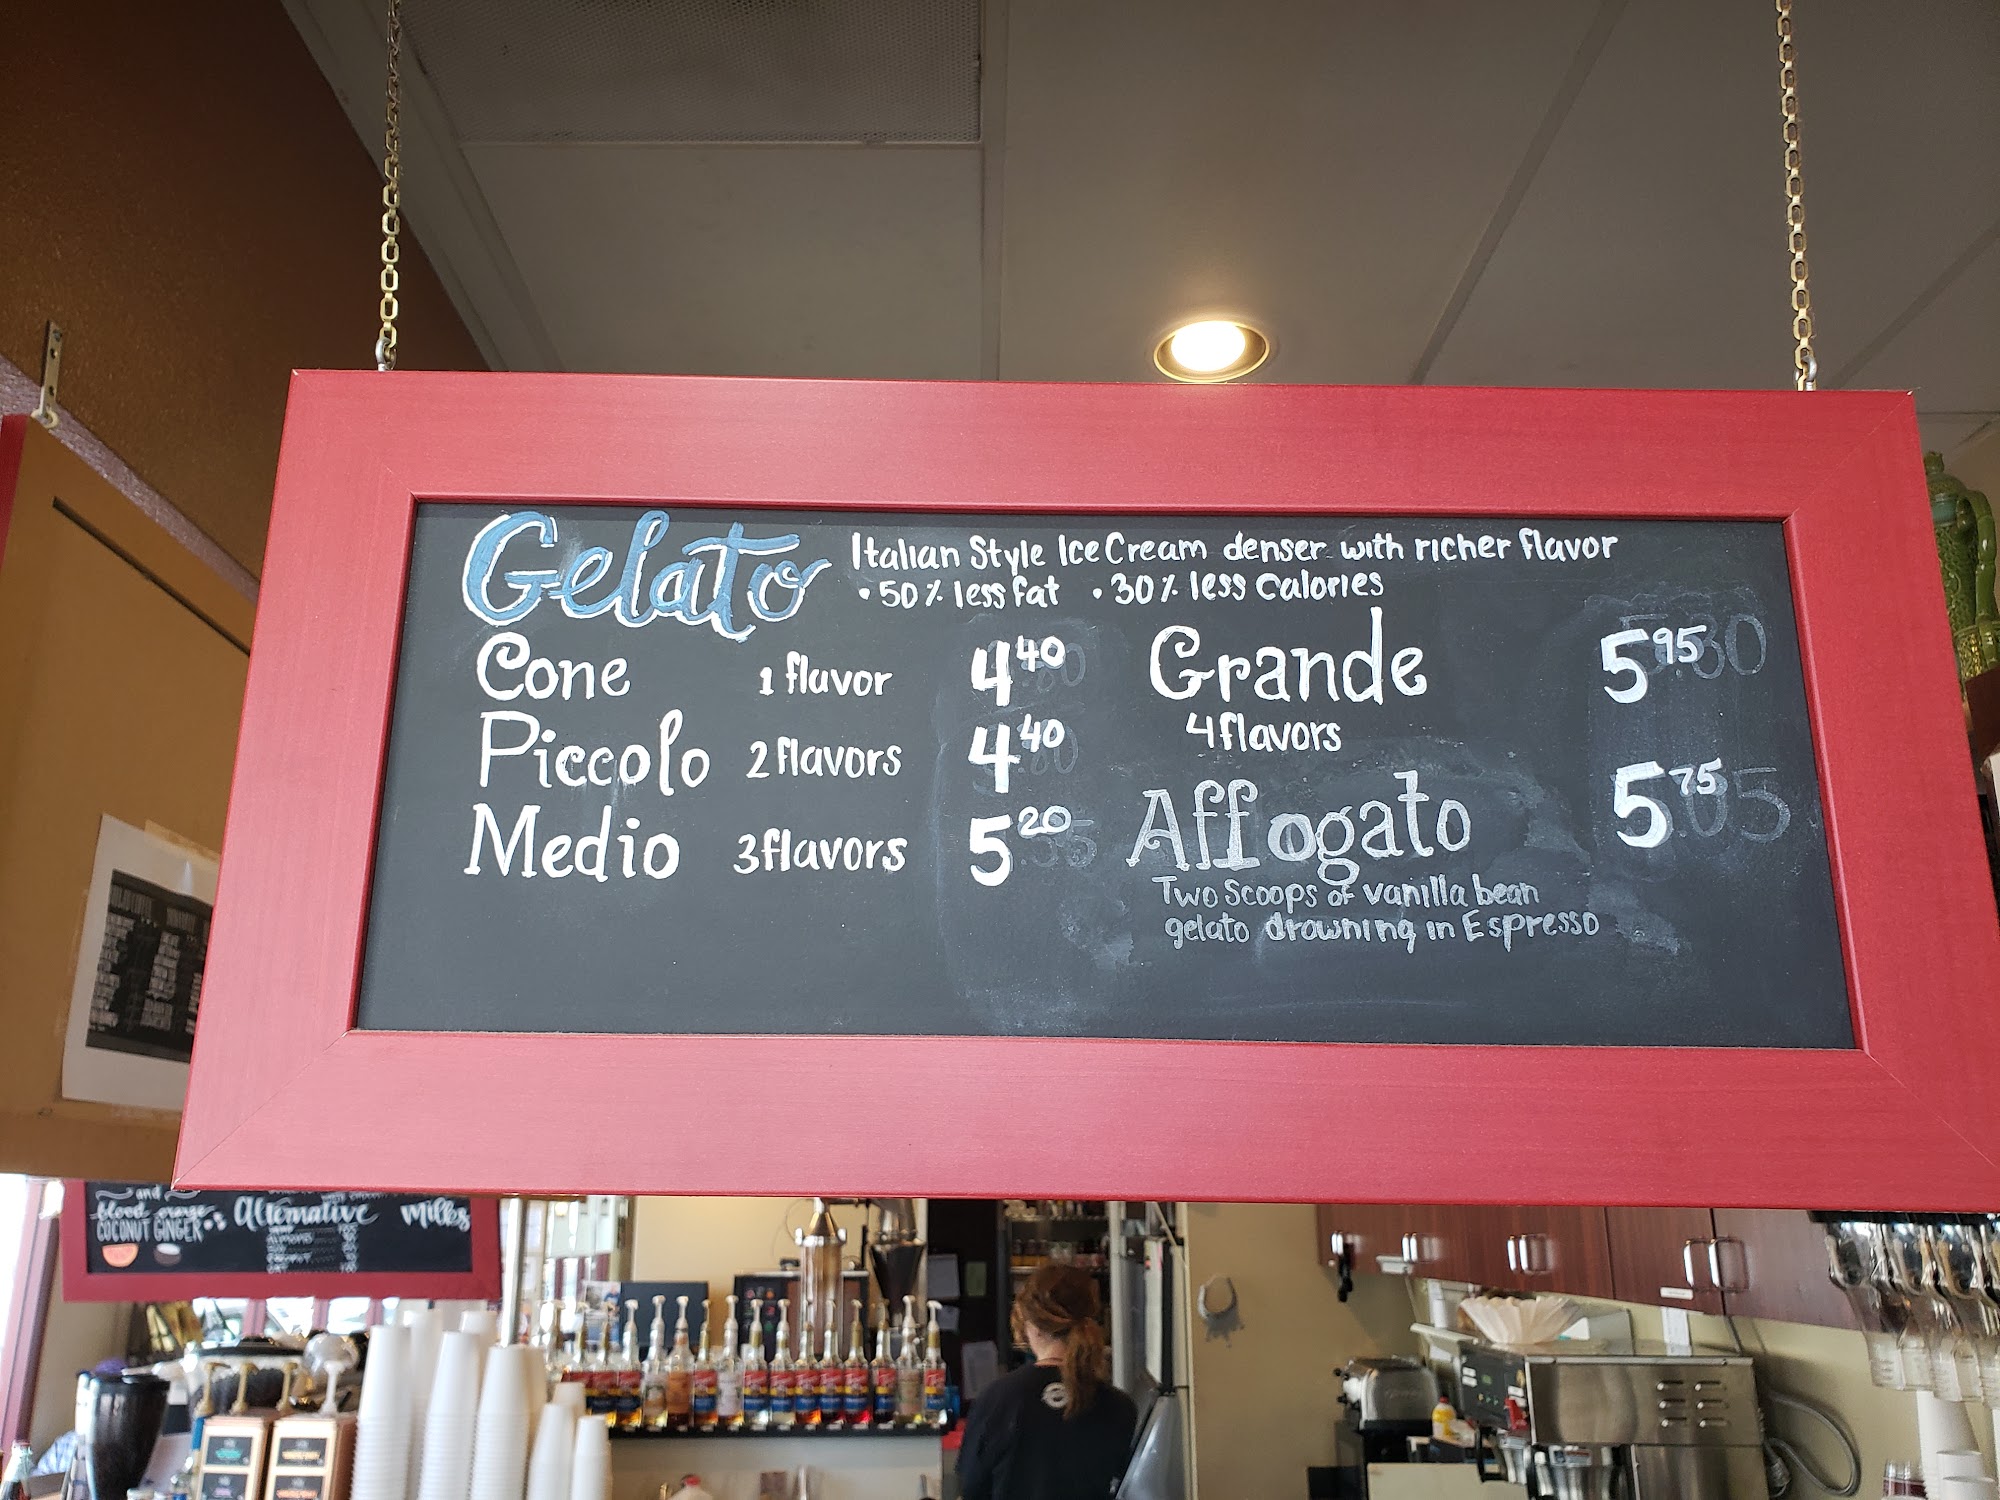 Gelato
Italian Style Ice Cream denser with richer flavor
• 50% less fat • 30% less calories
Cone 1 flavor 4 40
Piccolo 2 flavors 4 40
Medio 3 flavors 5 20
Grande 5 95
4 flavors
Affogato 5 75
Two Scoops of vanilla bean
gelato drowning in Espresso
and
blood orange
COCONUT GINGER
Alternative Milks